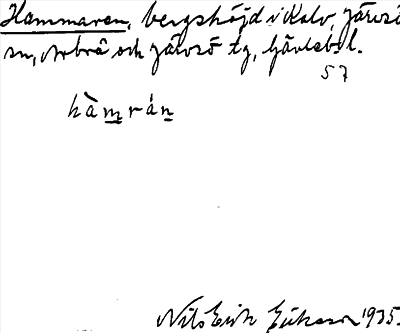 Hammaren, bergshöjd i Kalv, Järvsö
sn, Arbrå och Järvsö tg, Gävlebl.
57
hàmrán
Nils Erik Eriksson 1935.